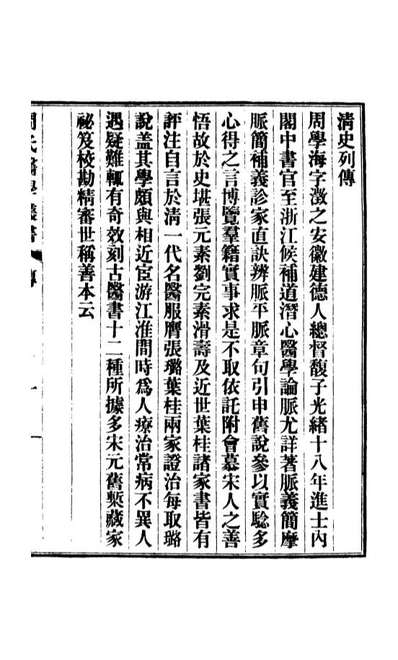 清史列傳
周學海字澂之安徽建德人總督馥子光緒十八年進士內
閣中書官至浙江候補道潛心醫學論脈尤詳著脈義簡摩
脈簡補義診家直訣辨脈平脈章句引申舊說參以實驗多
心得之言博覽羣籍實事求是不取依託附會慕宋人之善
悟故於史堪張元素劉完素滑壽及近世葉桂諸家書皆有
評注自言於清一代名醫服膺張璐葉桂兩家證治每取璐
說蓋其學頗與相近宦游江淮間時爲人療治常病不異人
遇疑難輒有奇效刻古醫書十二種所據多宋元舊槧藏家
祕笈校勘精審世稱善本云
周氏醫學叢書 傳 一